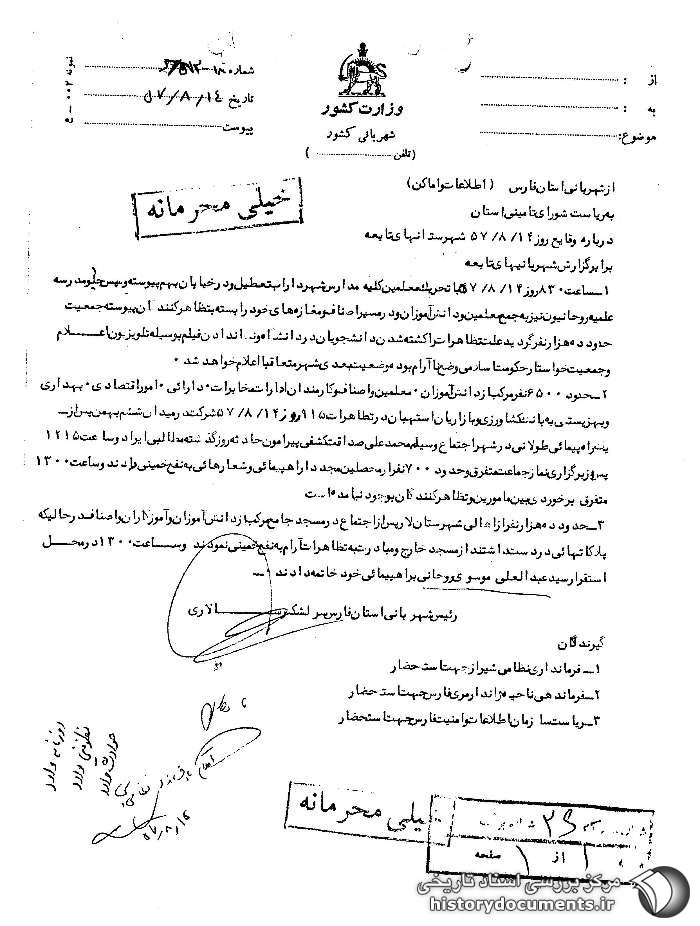 شماره
تاریخ ۵۷/۸/۱۴
پیوست
وزارت کشور
شهربانی کشور
(تلفن .................. )
از :
به :
موضوع:
خیلی محرمانه
از شهربانی استان فارس (اطلاعات و اماکن)
به ریاست شورای تامینی استان
درباره وقایع روز ۵۷/۸/۱۴ شهرستانهای تابعه
برابر گزارش شهربانیهای تابعه
۱ــ ساعت ۸۳۰ روز ۵۷/۸/۱۴ با تحریک معلمین کلیه مدارس شهر داراب تعطیل و در خیابان بهم پیوسته و سپس جلو مدرسه
علمیه روحانیون نیز به جمع معلمین و دانش آموزان و در مسیر اصناف و مغازه های خود را بسته به تظاهر کنندگان پیوسته جمعیت
حدود ده هزار نفر گردید علت تظاهرات کشته شدن دانشجویان در دانشگاه و نشاندادن فیلم بوسیله تلویزیون اعلام
و جمعیت خواستار حکومت اسلامی وضع آرام بوده وضعیت بعدی شهر متعاقبا اعلام خواهد شد ۰
۲ــ حدود ۶۵۰۰ نفر مرکب از دانش آموزان ۰ معلمین و اصناف و کارمندان ادارات مخابرات ۰ دارائی ۰ امور اقتصادی ۰ بهداری
و بهزیستی ۰ بانک کشاورزی و بازاریان استهبان در تظاهرات ۹۱۵ روز ۵۷/۸/۱۴ شرکت در میدان ششم بهمن پس از
یک راه پیمائی طولانی در شهر اجتماع وسیله محمد علی صداقت کشفی پیرامون حادثه روز گذشته مطالبی ایراد و ساعت ۱۲۱۵
پس از برگزاری نماز جماعت متفرق و حدود ۷۰۰ نفر از محصلین مجددا راهپیمائی و شعارهائی به نفع خمینی دادند و ساعت ۱۳۰۰
متفرق برخوردی بین مامورین و تظاهر کنندگان بوجود نیامده است
۳ــ حدود ده هزار نفر از اهالی شهرستان لار پس از اجتماع در مسجد جامع مرکب از دانش آموزان و آموزگاران و اصناف در حالیکه
پلاکاتهائی در دست داشتند از مسجد خارج و مبادرت به تظاهرات آرام به نفع خمینی نمودند و ساعت ۱۳۰۰ در محل
استقرار سید عبدالعلی موسوی روحانی براهپیمائی خود خاتمه دادند ۰ــ
رئیس شهربانی استان فارس سرلشکر ســالاری
گیرندگان
۱ــ فرمانداری نظامی شیراز جهت استحضار
۲ــ فرماندهی ناحیه ژاندارمری فارس جهت استحضار
۳ــ ریاست سازمان اطلاعات و امنیت فارس جهت استحضار
۵۷/۸/۱۴
خیلی محرمانه
۱ از ۱ صفحه
مرکز بررسی اسناد تاریخی
historydocuments.ir